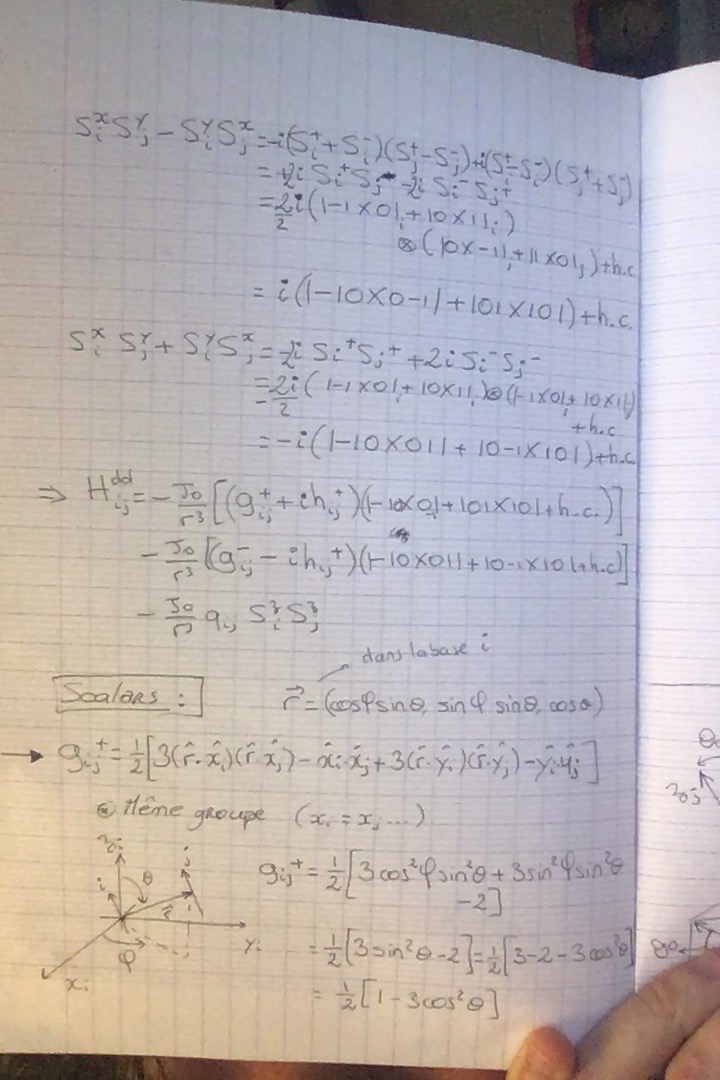 S_i^x S_j^y − S_i^y S_j^x = −i(S_i^+ + S_i^-)(S_j^+ − S_j^-) + i(S_i^+ − S_i^-)(S_j^+ + S_j^-)
= 2i S_i^+ S_j^- − 2i S_i^- S_j^+
= 2i/2 (|−1X0|_i + |0X1|_i)
⊗(|0X−1|_j + |1X0|_j) + h.c
= i(|−10X0−1| + |01X10|) + h.c.
S_i^x S_j^y + S_i^y S_j^x = 2i S_i^+ S_j^+ + 2i S_i^- S_j^-
= −2i/2 (|−1X0|_i + |0X1|_i)⊗(|−1X0|_j + |0X1|)
+ h.c
= −i(|−10X01| + |0−1X10|) + h.c
⇒ H_ij^dd = −J0/r³ [(g_ij^+ + ih_ij^+)(|−10X0| + |01X10| + h.c.)]
− J0/r³ [(g_ij^- − ih_ij^+)(|−10X01| + |0−1X10| + h.c)]
− J0/r³ q_ij S_i^z S_j^z
dans la base i
Scalars :
r⃗ = (cosφ sinθ, sinφ sinθ, cosθ)
→ g_ij^+ = 1/2 [3(r̂·x̂_i)(r̂·x̂_j) − x̂_i·x̂_j + 3(r̂·ŷ_i)(r̂·ŷ_j) − ŷ_i·ŷ_j]
Même groupe (x_i = x_j ...)
g_ij^+ = 1/2 [3cos²φ sin²θ + 3sin²φ sin²θ
−2]
= 1/2 [3sin²θ − 2] = 1/2 [3 − 2 − 3cos²θ]
= 1/2 [1 − 3cos²θ]
z_i
i
θ
j
r⃗
y_i
φ
x_i